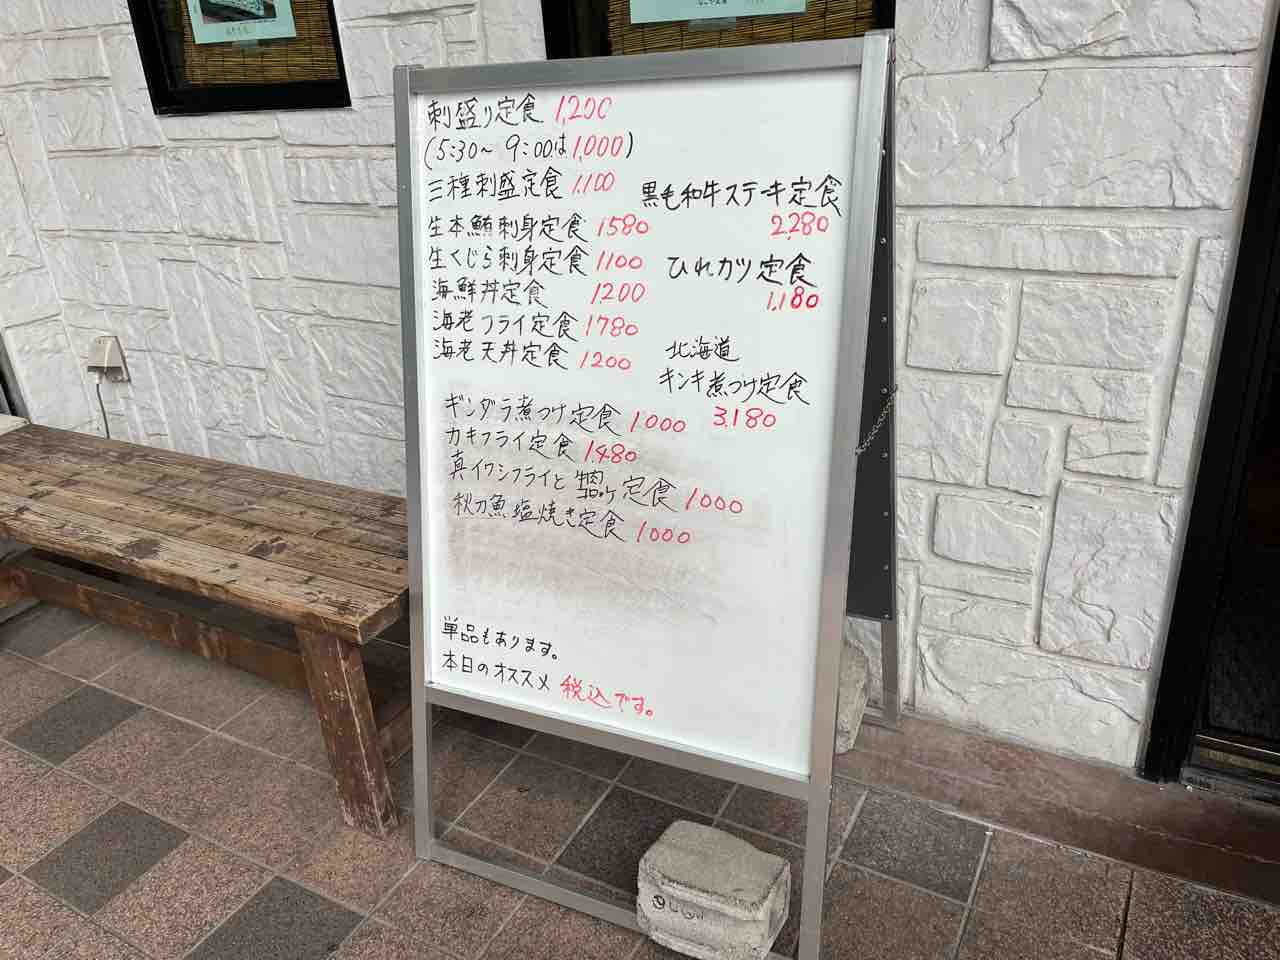 刺盛り定食 1,200
(5:30〜 9:00は1,000)
三種刺盛定食 1,100
生本鮪刺身定食 1580
生くじら刺身定食 1100
海鮮丼定食 1200
海老フライ定食 1780
海老天丼定食 1200
ギンダラ煮つけ定食 1.000
カキフライ定食 1.480
真イワシフライと 定食 1000
秋刀魚塩焼き定食 1000
黒毛和牛ステーキ定食
2,280
ひれカツ定食
1,180
北海道
キンキ煮つけ定食
3.180
単品もあります。
本日のオススメ 税込です。